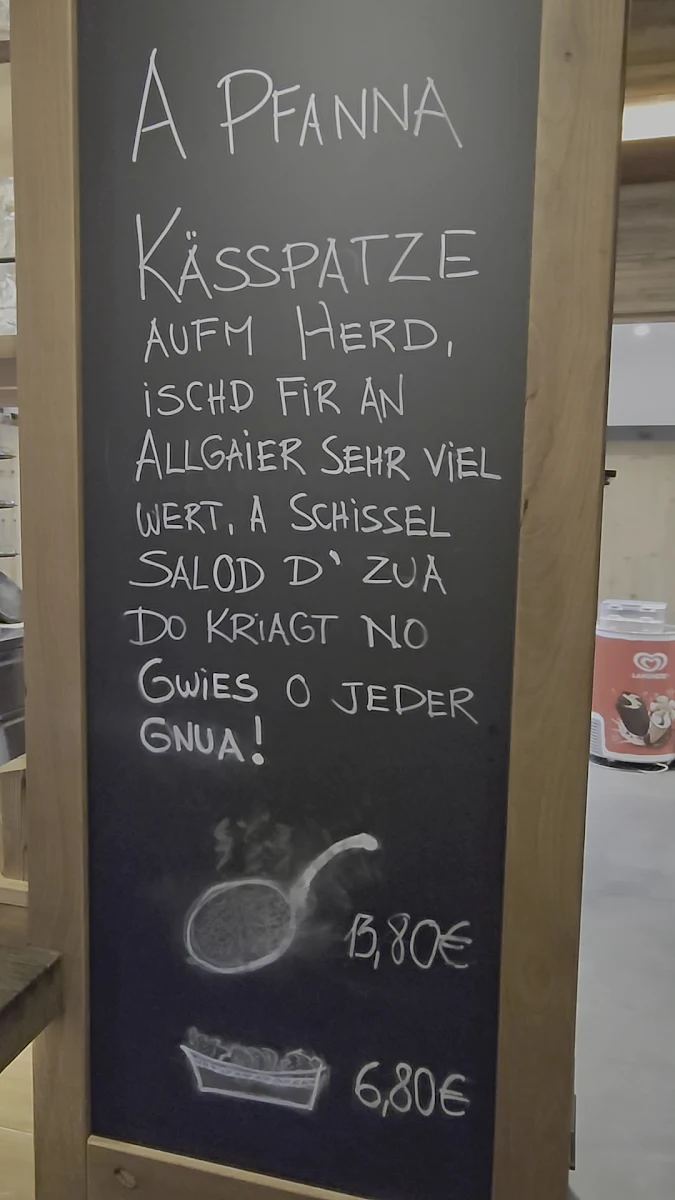 A PFANNA
KÄSSPATZE
AUFM HERD,
iSCHD FiR AN
ALLGAiER SEHR ViEL
WERT, A SCHiSSEL
SALOD D' ZUA
DO KRiAGT NO
GWiES O JEDER
GNUA!
13,80€
6,80€